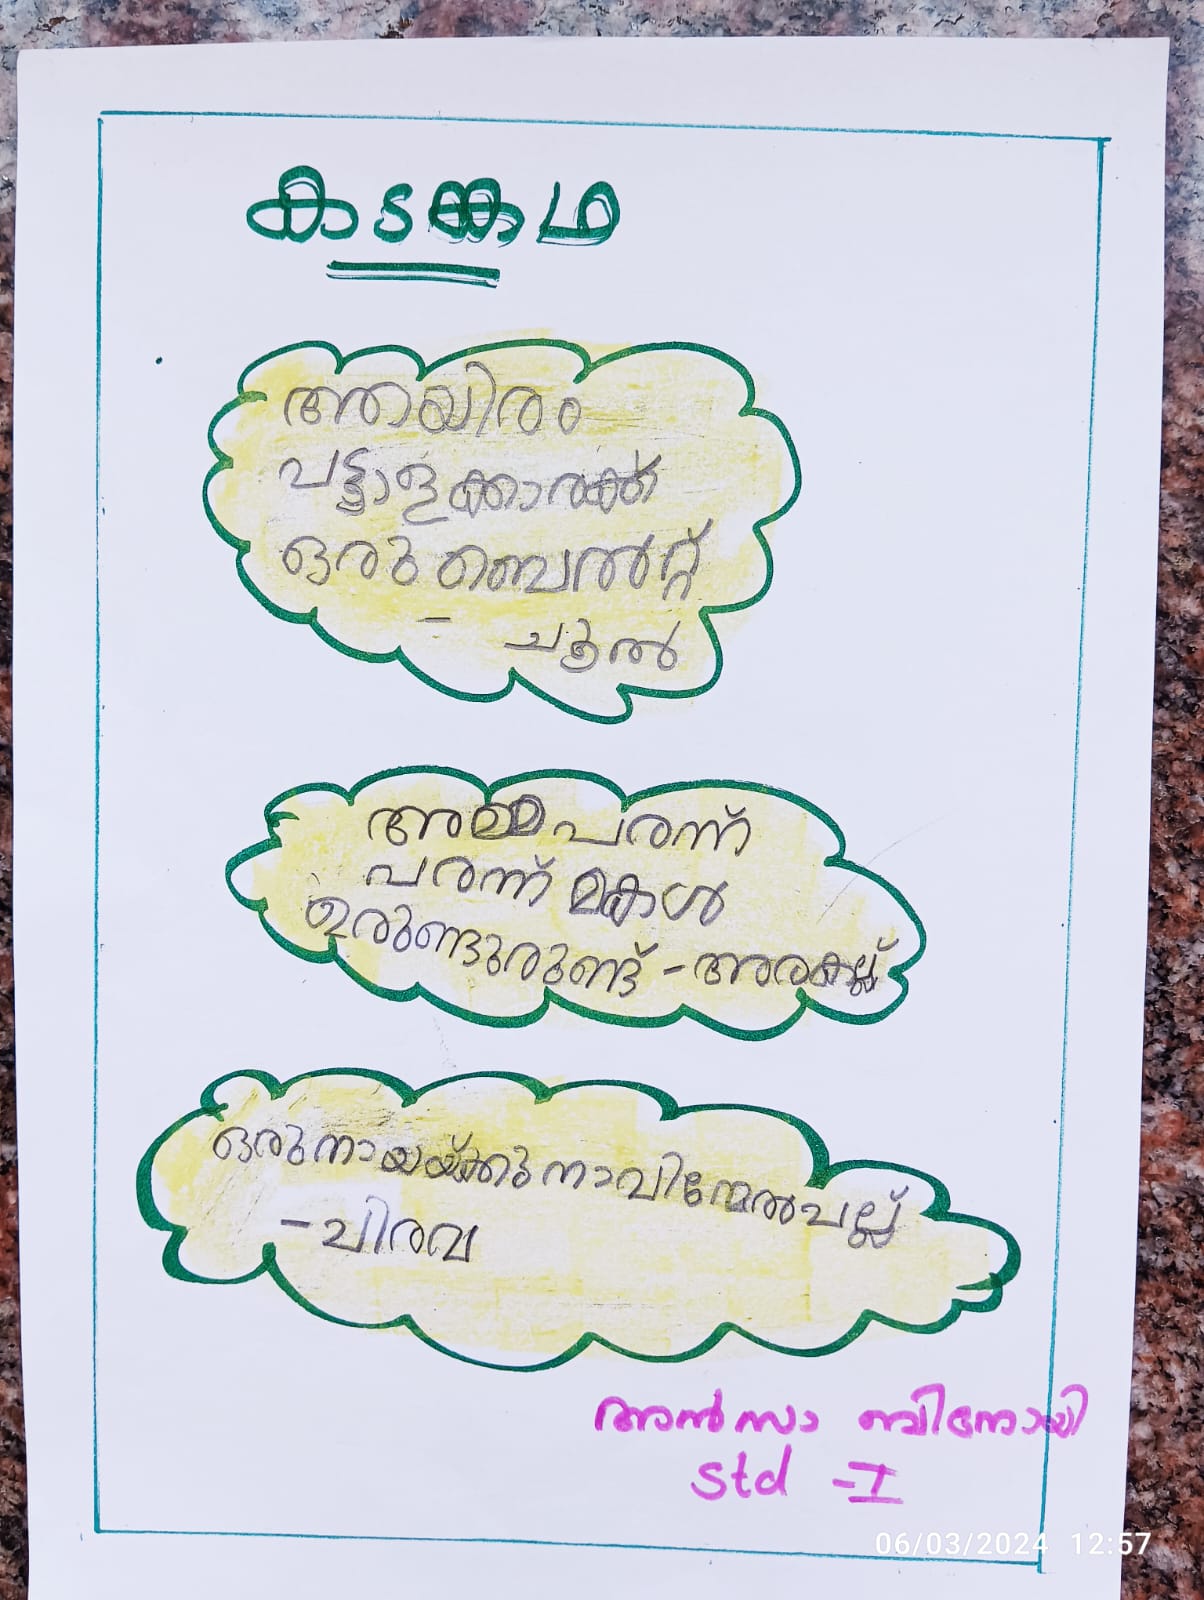 കടങ്കഥ
ആയിരം
പട്ടാളക്കാരക്ക്
ഒരു ബെൽറ്റ്
- ചൂൽ
അമ്മ പരന്ന്
പരന്ന് മകൾ
ഉരുണ്ടുരുണ്ട് - അരകല്ല്
ഒരുനായയ്ക്കു നാവിന്മേൽപല്ല്
- ചിരവ
അൻസാ ബിനോയി
Std - I
06/03/2024 12:57